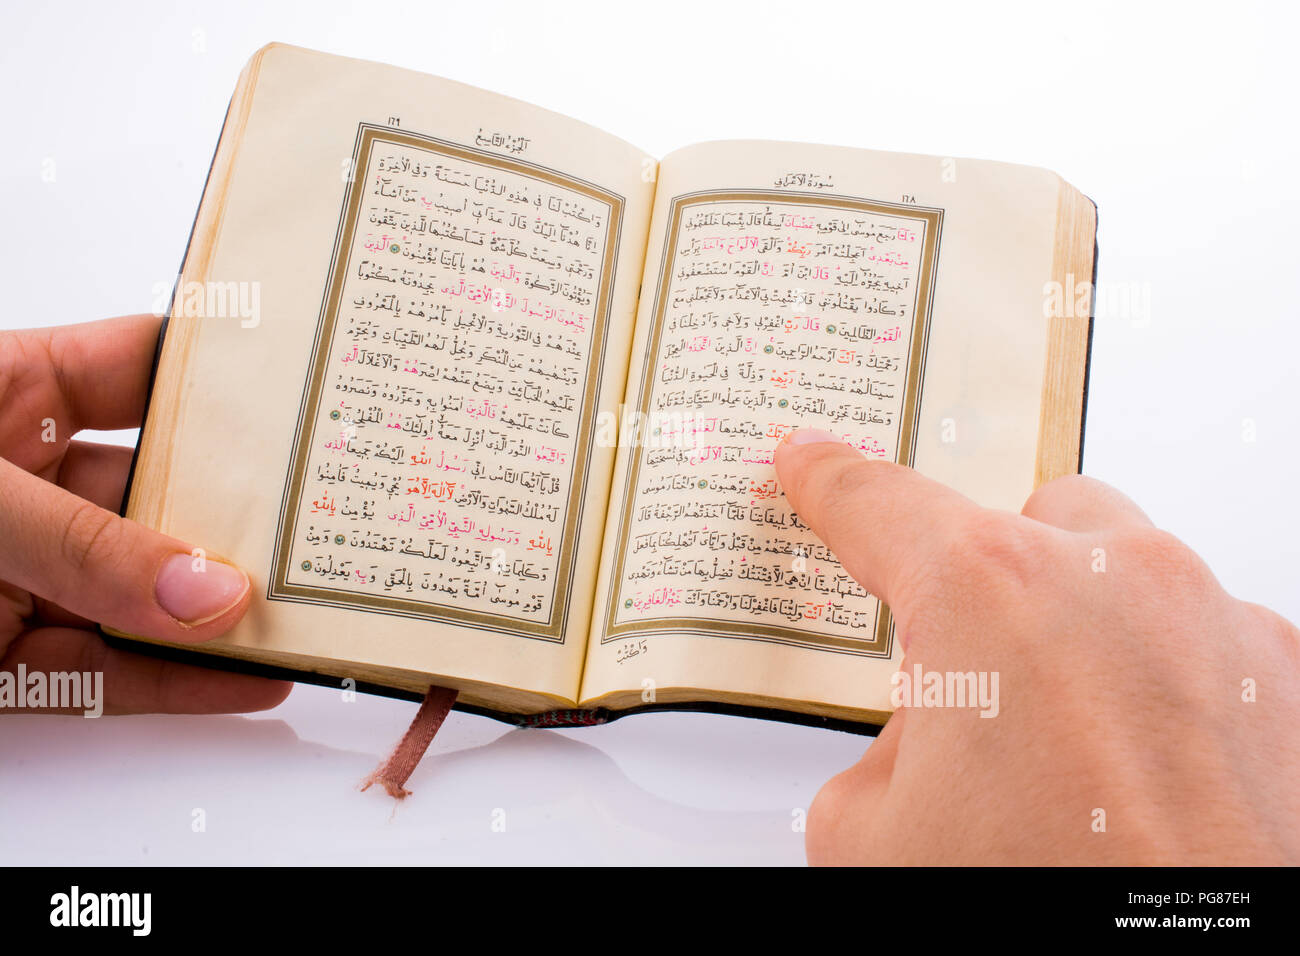 سُورَةُ الْاَعْرَافِ ١٦٨
وَلَمَّا رَجَعَ مُوسٰٓى اِلٰى قَوْمِهٖ غَضْبَانَ اَسِفًا قَالَ بِئْسَمَا خَلَفْتُمُونٖى
مِنْ بَعْدٖى اَعَجِلْتُمْ اَمْرَ رَبِّكُمْ وَاَلْقَى الْاَلْوَاحَ وَاَخَذَ بِرَأْسِ
اَخٖيهِ يَجُرُّهُٓ اِلَيْهِ قَالَ ابْنَ اُمَّ اِنَّ الْقَوْمَ اسْتَضْعَفُونٖى
وَكَادُوا يَقْتُلُونَنٖى فَلَا تُشْمِتْ بِىَ الْاَعْدَٓاءَ وَلَا تَجْعَلْنٖى مَعَ
الْقَوْمِ الظَّالِمٖينَ قَالَ رَبِّ اغْفِرْ لٖى وَلِاَخٖى وَاَدْخِلْنَا فٖى
رَحْمَتِكَ وَاَنْتَ اَرْحَمُ الرَّاحِمٖينَ اِنَّ الَّذٖينَ اتَّخَذُوا الْعِجْلَ
سَيَنَالُهُمْ غَضَبٌ مِنْ رَبِّهِمْ وَذِلَّةٌ فِى الْحَيٰوةِ الدُّنْيَا
وَكَذٰلِكَ نَجْزِى الْمُفْتَرٖينَ وَالَّذٖينَ عَمِلُوا السَّيِّئَاتِ ثُمَّ تَابُوا
مِنْ بَعْدِهَا رَبَّكَ مِنْ بَعْدِهَا لَغَفُورٌ رَحٖيمٌ
الْغَضَبُ اَخَذَ الْاَلْوَاحَ وَفٖى نُسْخَتِهَا
لِرَبِّهِمْ يَرْهَبُونَ وَاخْتَارَ مُوسٰى
رَجُلًا لِمٖيقَاتِنَا فَلَمَّٓا اَخَذَتْهُمُ الرَّجْفَةُ قَالَ
شِئْتَ اَهْلَكْتَهُمْ مِنْ قَبْلُ وَاِيَّاىَ اَتُهْلِكُنَا بِمَا فَعَلَ
السُّفَهَٓاءُ مِنَّا اِنْ هِىَ اِلَّا فِتْنَتُكَ تُضِلُّ بِهَا مَنْ تَشَٓاءُ وَتَهْدٖى
مَنْ تَشَٓاءُ اَنْتَ وَلِيُّنَا فَاغْفِرْ لَنَا وَارْحَمْنَا وَاَنْتَ خَيْرُ الْغَافِرٖينَ
وَاكْتُبْ
اَلْجُزْءُ التَّاسِعُ ١٦٩
وَاكْتُبْ لَنَا فٖى هٰذِهِ الدُّنْيَا حَسَنَةً وَفِى الْاٰخِرَةِ
اِنَّا هُدْنَٓا اِلَيْكَ قَالَ عَذَابٖٓى اُصٖيبُ بِهٖ مَنْ اَشَٓاءُ
وَرَحْمَتٖى وَسِعَتْ كُلَّ شَىْءٍ فَسَاَكْتُبُهَا لِلَّذٖينَ يَتَّقُونَ
وَيُؤْتُونَ الزَّكٰوةَ وَالَّذٖينَ هُمْ بِاٰيَاتِنَا يُؤْمِنُونَ اَلَّذٖينَ
يَتَّبِعُونَ الرَّسُولَ النَّبِىَّ الْاُمِّىَّ الَّذٖى يَجِدُونَهُ مَكْتُوبًا
عِنْدَهُمْ فِى التَّوْرٰيةِ وَالْاِنْجٖيلِ يَأْمُرُهُمْ بِالْمَعْرُوفِ
وَيَنْهٰيهُمْ عَنِ الْمُنْكَرِ وَيُحِلُّ لَهُمُ الطَّيِّبَاتِ وَيُحَرِّمُ
عَلَيْهِمُ الْخَبَٓائِثَ وَيَضَعُ عَنْهُمْ اِصْرَهُمْ وَالْاَغْلَالَ الَّتٖى
كَانَتْ عَلَيْهِمْ فَالَّذٖينَ اٰمَنُوا بِهٖ وَعَزَّرُوهُ وَنَصَرُوهُ
وَاتَّبَعُوا النُّورَ الَّذٖٓى اُنْزِلَ مَعَهُٓ اُولٰٓئِكَ هُمُ الْمُفْلِحُونَ
قُلْ يَٓا اَيُّهَا النَّاسُ اِنّٖى رَسُولُ اللّٰهِ اِلَيْكُمْ جَمٖيعًا الَّذٖى
لَهُ مُلْكُ السَّمٰوَاتِ وَالْاَرْضِ لَٓا اِلٰهَ اِلَّا هُوَ يُحْيٖى وَيُمٖيتُ فَاٰمِنُوا
بِاللّٰهِ وَرَسُولِهِ النَّبِىِّ الْاُمِّىِّ الَّذٖى يُؤْمِنُ بِاللّٰهِ
وَكَلِمَاتِهٖ وَاتَّبِعُوهُ لَعَلَّكُمْ تَهْتَدُونَ وَمِنْ
قَوْمِ مُوسٰٓى اُمَّةٌ يَهْدُونَ بِالْحَقِّ وَبِهٖ يَعْدِلُونَ
alamy
alamy stock photo
PG87EH
www.alamy.com